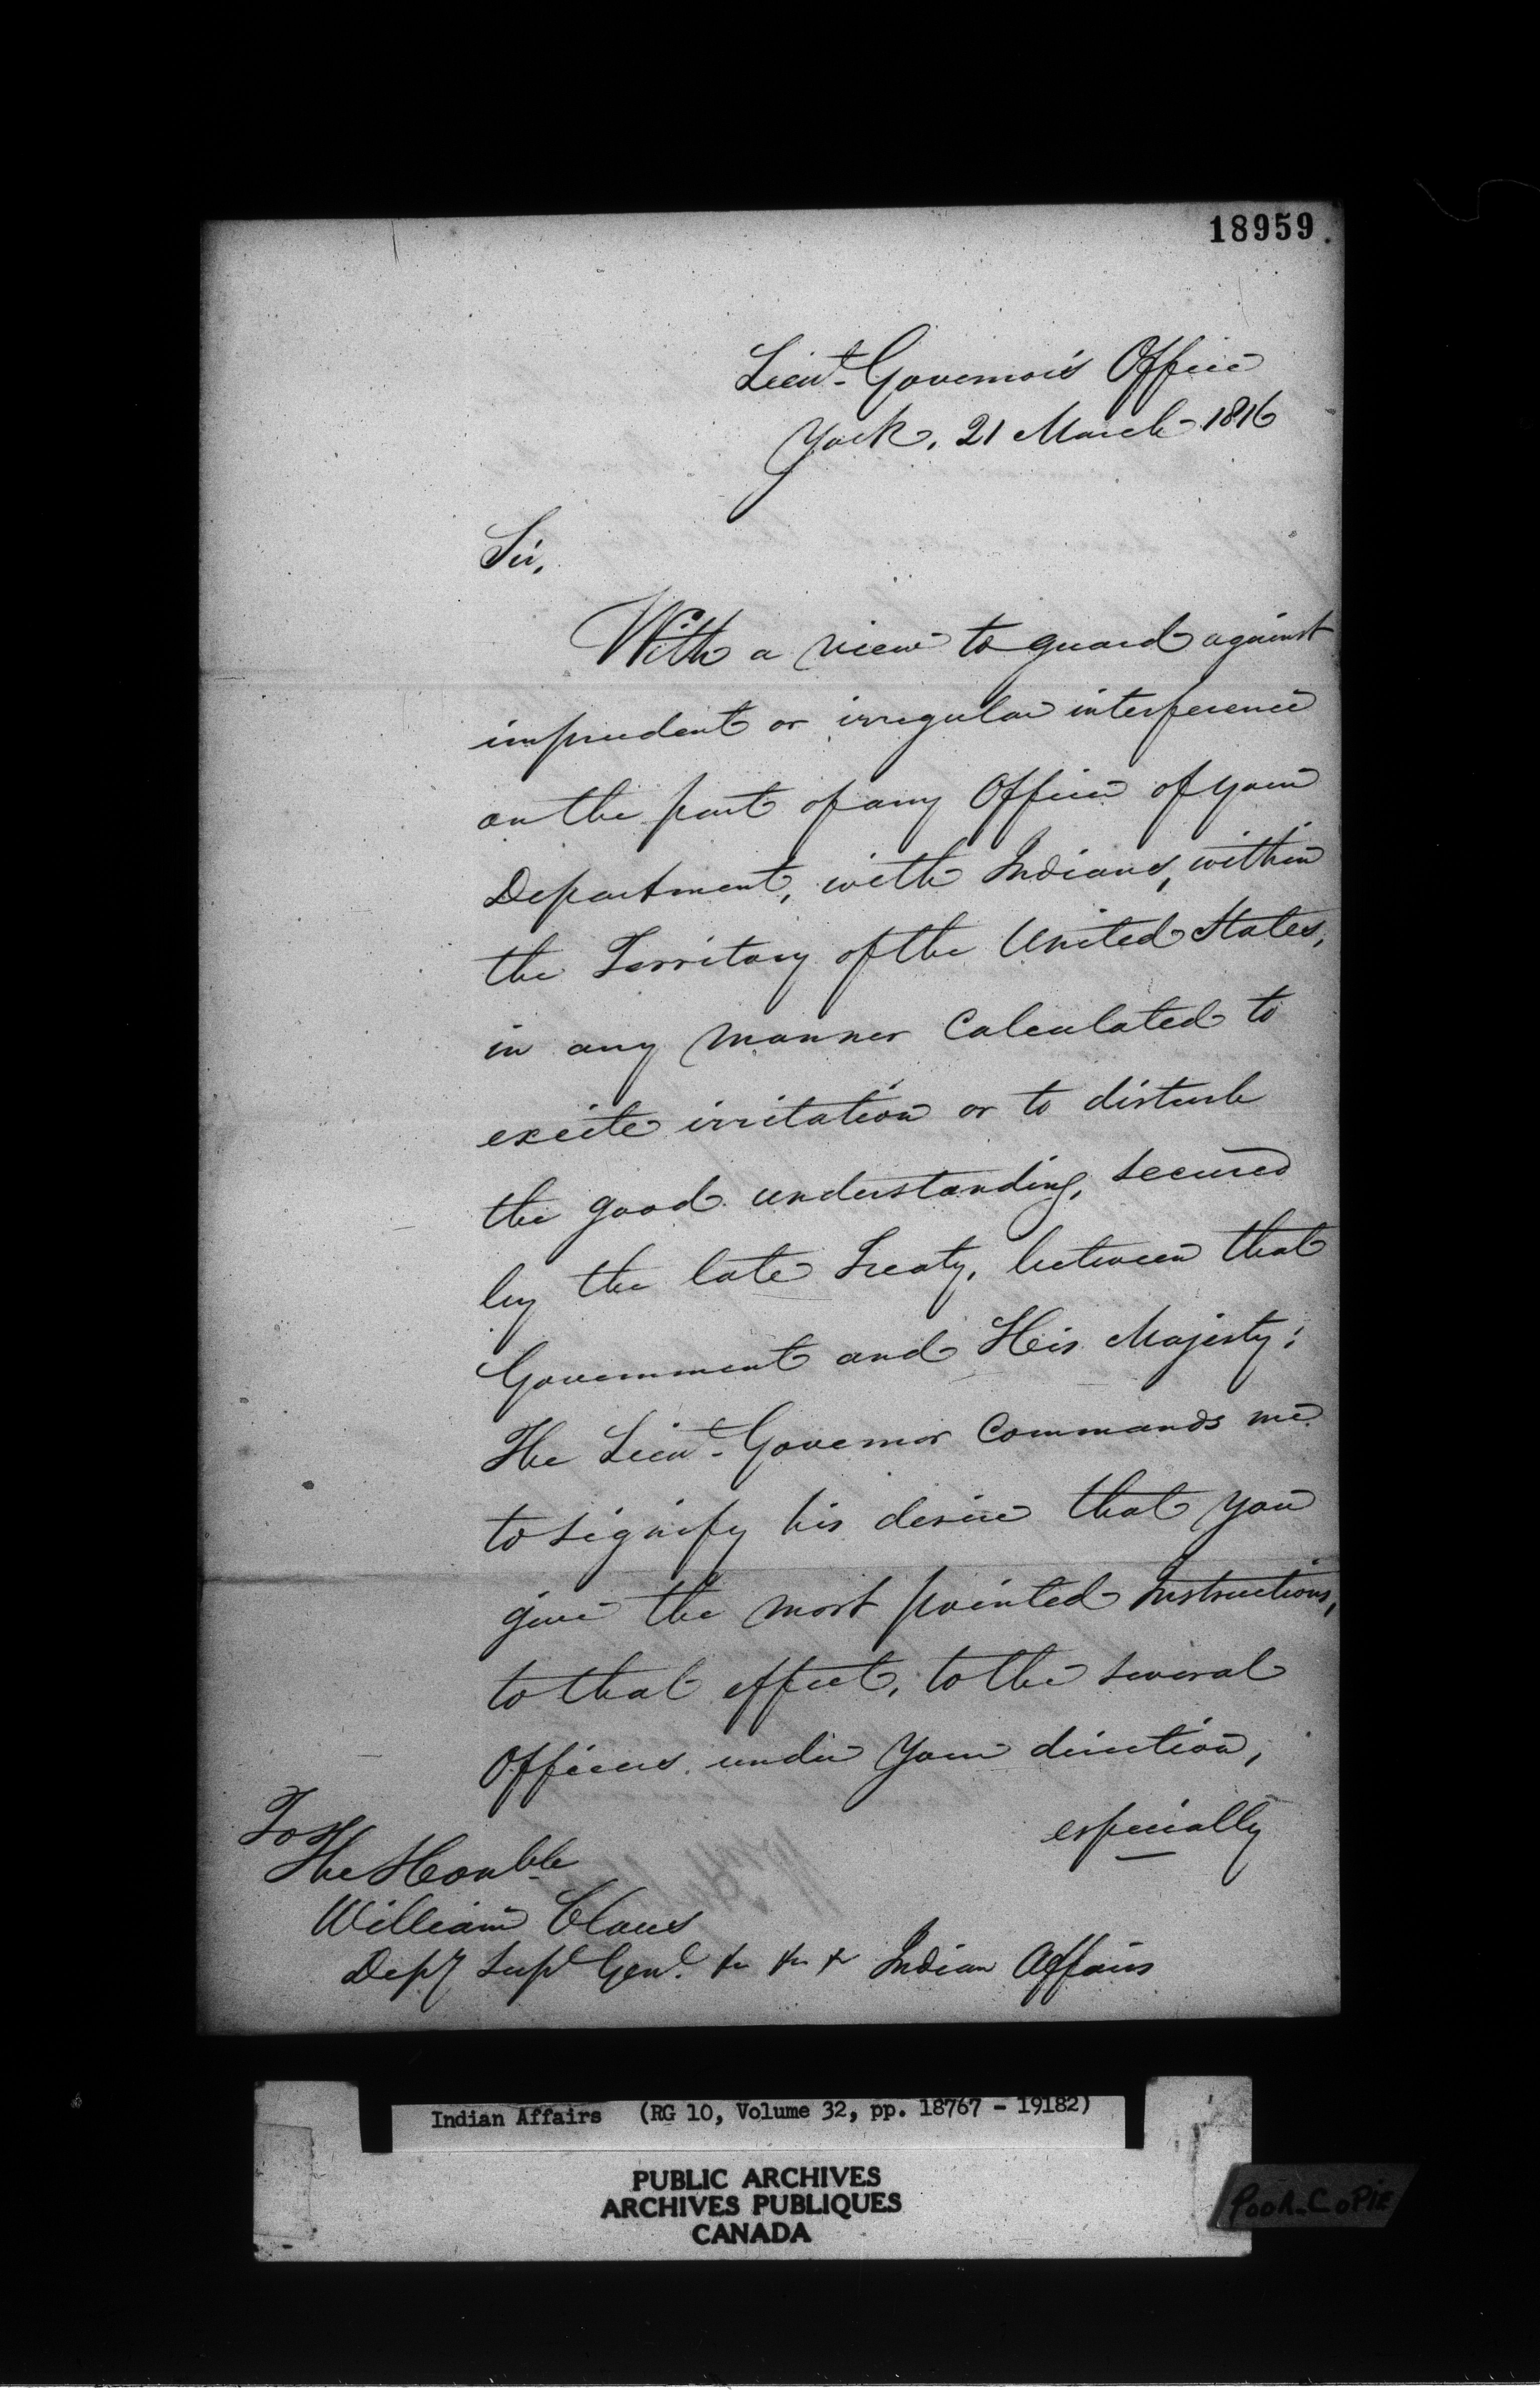 18959
Lieut. Governor's Office
York, 21 March 1816
Sir,
With a view to guard against
imprudent or irregular interference
on the part of any Officer of your
Department, with Indians, within
the Territory of the United States,
in any manner Calculated to
excite irritation or to disturb
the good understanding, secured
by the late Treaty, between that
Government and His Majesty;
The Lieut. Governor Commands me
to signify his desire that you
give the most pointed Instructions,
to that effect, to the several
Officers under Your direction,
especially
To
The Honble
William Claus
Depy Supt Genl. &c &c &c Indian Affairs
Indian Affairs (RG 10, Volume 32, pp. 18767 - 19182)
PUBLIC ARCHIVES
ARCHIVES PUBLIQUES
CANADA
POOR COPIE